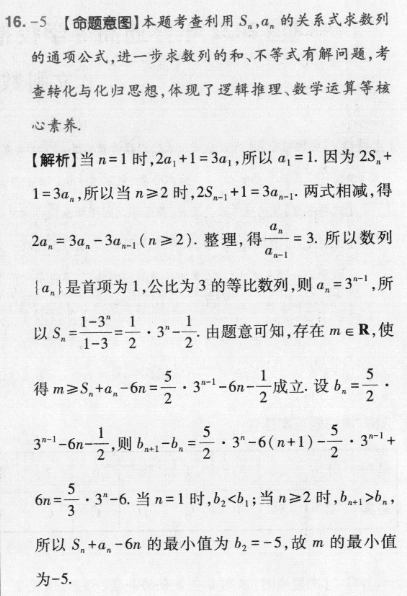 16. -5 【命题意图】本题考查利用 Sₙ,aₙ 的关系式求数列
的通项公式,进一步求数列的和、不等式有解问题,考
查转化与化归思想,体现了逻辑推理、数学运算等核
心素养.
【解析】当 n=1 时,2a₁+1=3a₁,所以 a₁=1. 因为 2Sₙ+
1=3aₙ,所以当 n≥2 时,2Sₙ₋₁+1=3aₙ₋₁. 两式相减,得
2aₙ=3aₙ-3aₙ₋₁(n≥2). 整理,得 aₙ/aₙ₋₁=3. 所以数列
{aₙ}是首项为 1,公比为 3 的等比数列,则 aₙ=3ⁿ⁻¹,所
以 Sₙ=(1-3ⁿ)/(1-3)=1/2·3ⁿ-1/2. 由题意可知,存在 m∈R,使
得 m≥Sₙ+aₙ-6n=5/2·3ⁿ⁻¹-6n-1/2成立. 设 bₙ=5/2·
3ⁿ⁻¹-6n-1/2,则 bₙ₊₁-bₙ=5/2·3ⁿ-6(n+1)-5/2·3ⁿ⁻¹+
6n=5/3·3ⁿ-6. 当 n=1 时,b₂<b₁;当 n≥2 时,bₙ₊₁>bₙ,
所以 Sₙ+aₙ-6n 的最小值为 b₂=-5,故 m 的最小值
为-5.